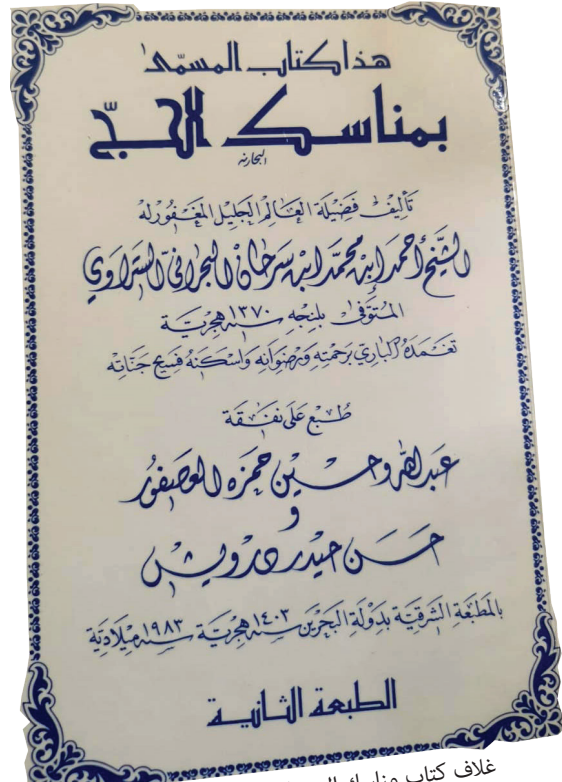 هذا كتاب المسمّى
بمناسك الحجّ
البحارنه
تأليف فضيلة العالم الجليل المغفور له
الشيخ أحمد ابن محمد ابن سرحان البحراني الستراوي
المتوفى بلنجه سنه ١٣٧٠ هجرية
تغمده الباري برحمته ورضوانه واسكنه فسيح جناته
طبع على نفقة
عبدالله وحسين حمزه العصفور
و
حسن حيدر درويش
بالمطبعة الشرقية بدولة البحرين سنه ١٤٠٣ هجرية سنه ١٩٨٣ ميلادية
الطبعة الثانية
غلاف كتاب مناسك